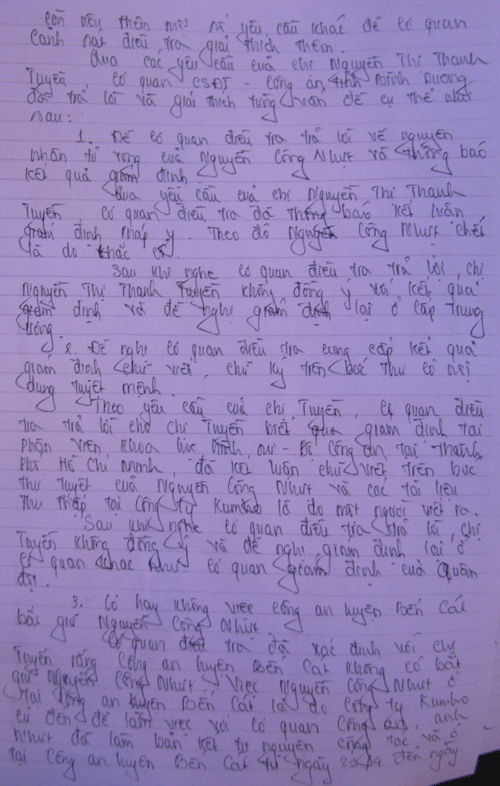 còn nêu thêm một số yêu cầu khác để cơ quan
cảnh sát điều tra giải thích thêm.
Qua các yêu cầu của chị Nguyễn Thị Thanh
Tuyền cơ quan CSĐT - Công an tỉnh Bình Dương
đã trả lời và giải thích từng vấn đề cụ thể như
sau:
1. Để cơ quan điều tra trả lời về nguyên
nhân tử vong của Nguyễn Công Nhựt và thông báo
kết quả giám định.
Qua yêu cầu của chị Nguyễn Thị Thanh
Tuyền cơ quan điều tra đã thông báo kết luận
giám định pháp y. Theo đó Nguyễn Công Nhựt chết
là do thắc cổ.
Sau khi nghe cơ quan điều tra trả lời, chị
Nguyễn Thị Thanh Tuyền không đồng ý với kết quả
giám định và đề nghị giám định lại ở cấp Trung
ương.
2. Đề nghị cơ quan điều tra cung cấp kết quả
giám định chữ viết, chữ ký trên bức thư có nội
dung tuyệt mệnh.
Theo yêu cầu của chị Tuyền, cơ quan điều
tra trả lời cho chị Tuyền biết qua giám định tại
Phân Viện Khoa học hình sự - Bộ Công an, tại Thành
Phố Hồ Chí Minh, đã kết luận chữ viết trên bức
thư tuyệt của Nguyễn Công Nhựt và các tài liệu
thu thập tại Công ty Kumho là do một người viết ra.
Sau khi nghe cơ quan điều tra trả lời, chị
Tuyền không đồng ý và đề nghị giám định lại ở
cơ quan khác như cơ quan giám định của Quân
đội.
3. Có hay không việc công an huyện Bến Cát
bắt giữ Nguyễn Công Nhựt
Cơ quan điều tra đã xác định với chị
Tuyền rằng Công an huyện Bến Cát không có bắt
giữ Nguyễn Công Nhựt. Việc Nguyễn Công Nhựt ở
tại Công an huyện Bến Cát là do Công ty Kumho
cử đến để làm việc với cơ quan Công an, anh
Nhựt đã làm bản kết tự nguyện cộng tác và ở
tại Công an huyện Bến Cát từ ngày đến ngày